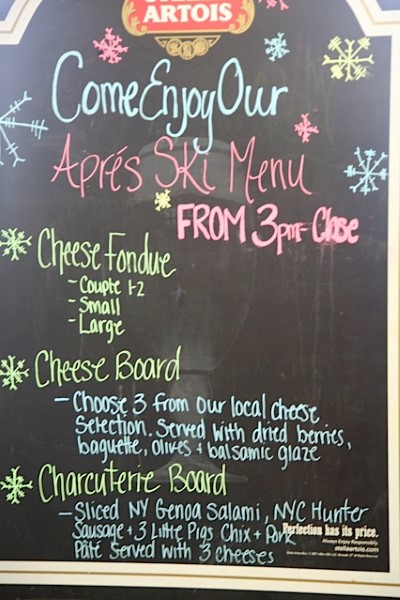 ARTOIS
Come Enjoy Our
Aprés Ski Menu
FROM 3pm-Close
Cheese Fondue
- Couple 1-2
- Small
- Large
Cheese Board
- Choose 3 from our local cheese
Selection. Served with dried berries,
baguette, olives + balsamic glaze
Charcuterie Board
- Sliced NY Genoa Salami, NYC Hunter
Sausage + 3 Little Pigs Chix + Pork
Paté Served with 3 cheeses
Perfection has its price.
Always Enjoy Responsibly.
stellaartois.com